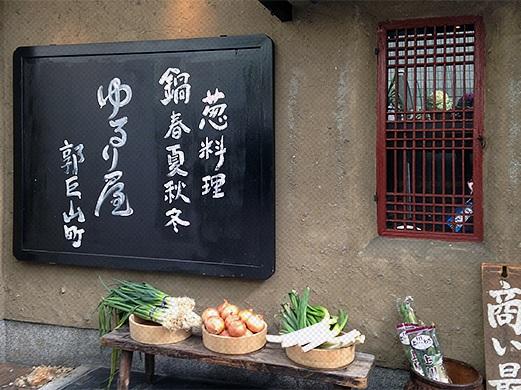 葱料理
鍋春夏秋冬
ゆるり屋
郭巨山町
商い